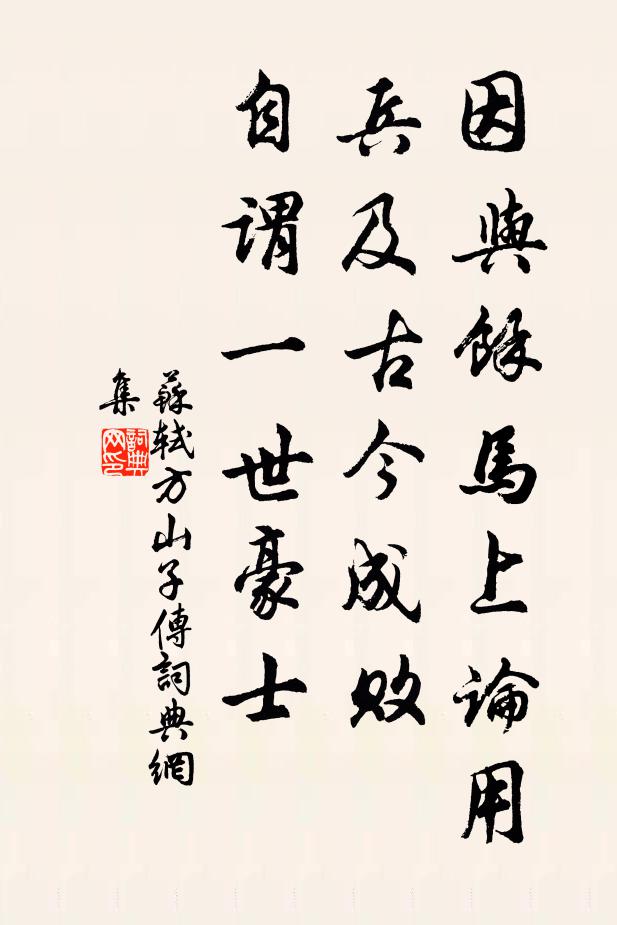 因與餘馬上論用
兵及古今成敗
自謂一世豪士
蘇軾方山子傳詞典網
集
詞典
网印